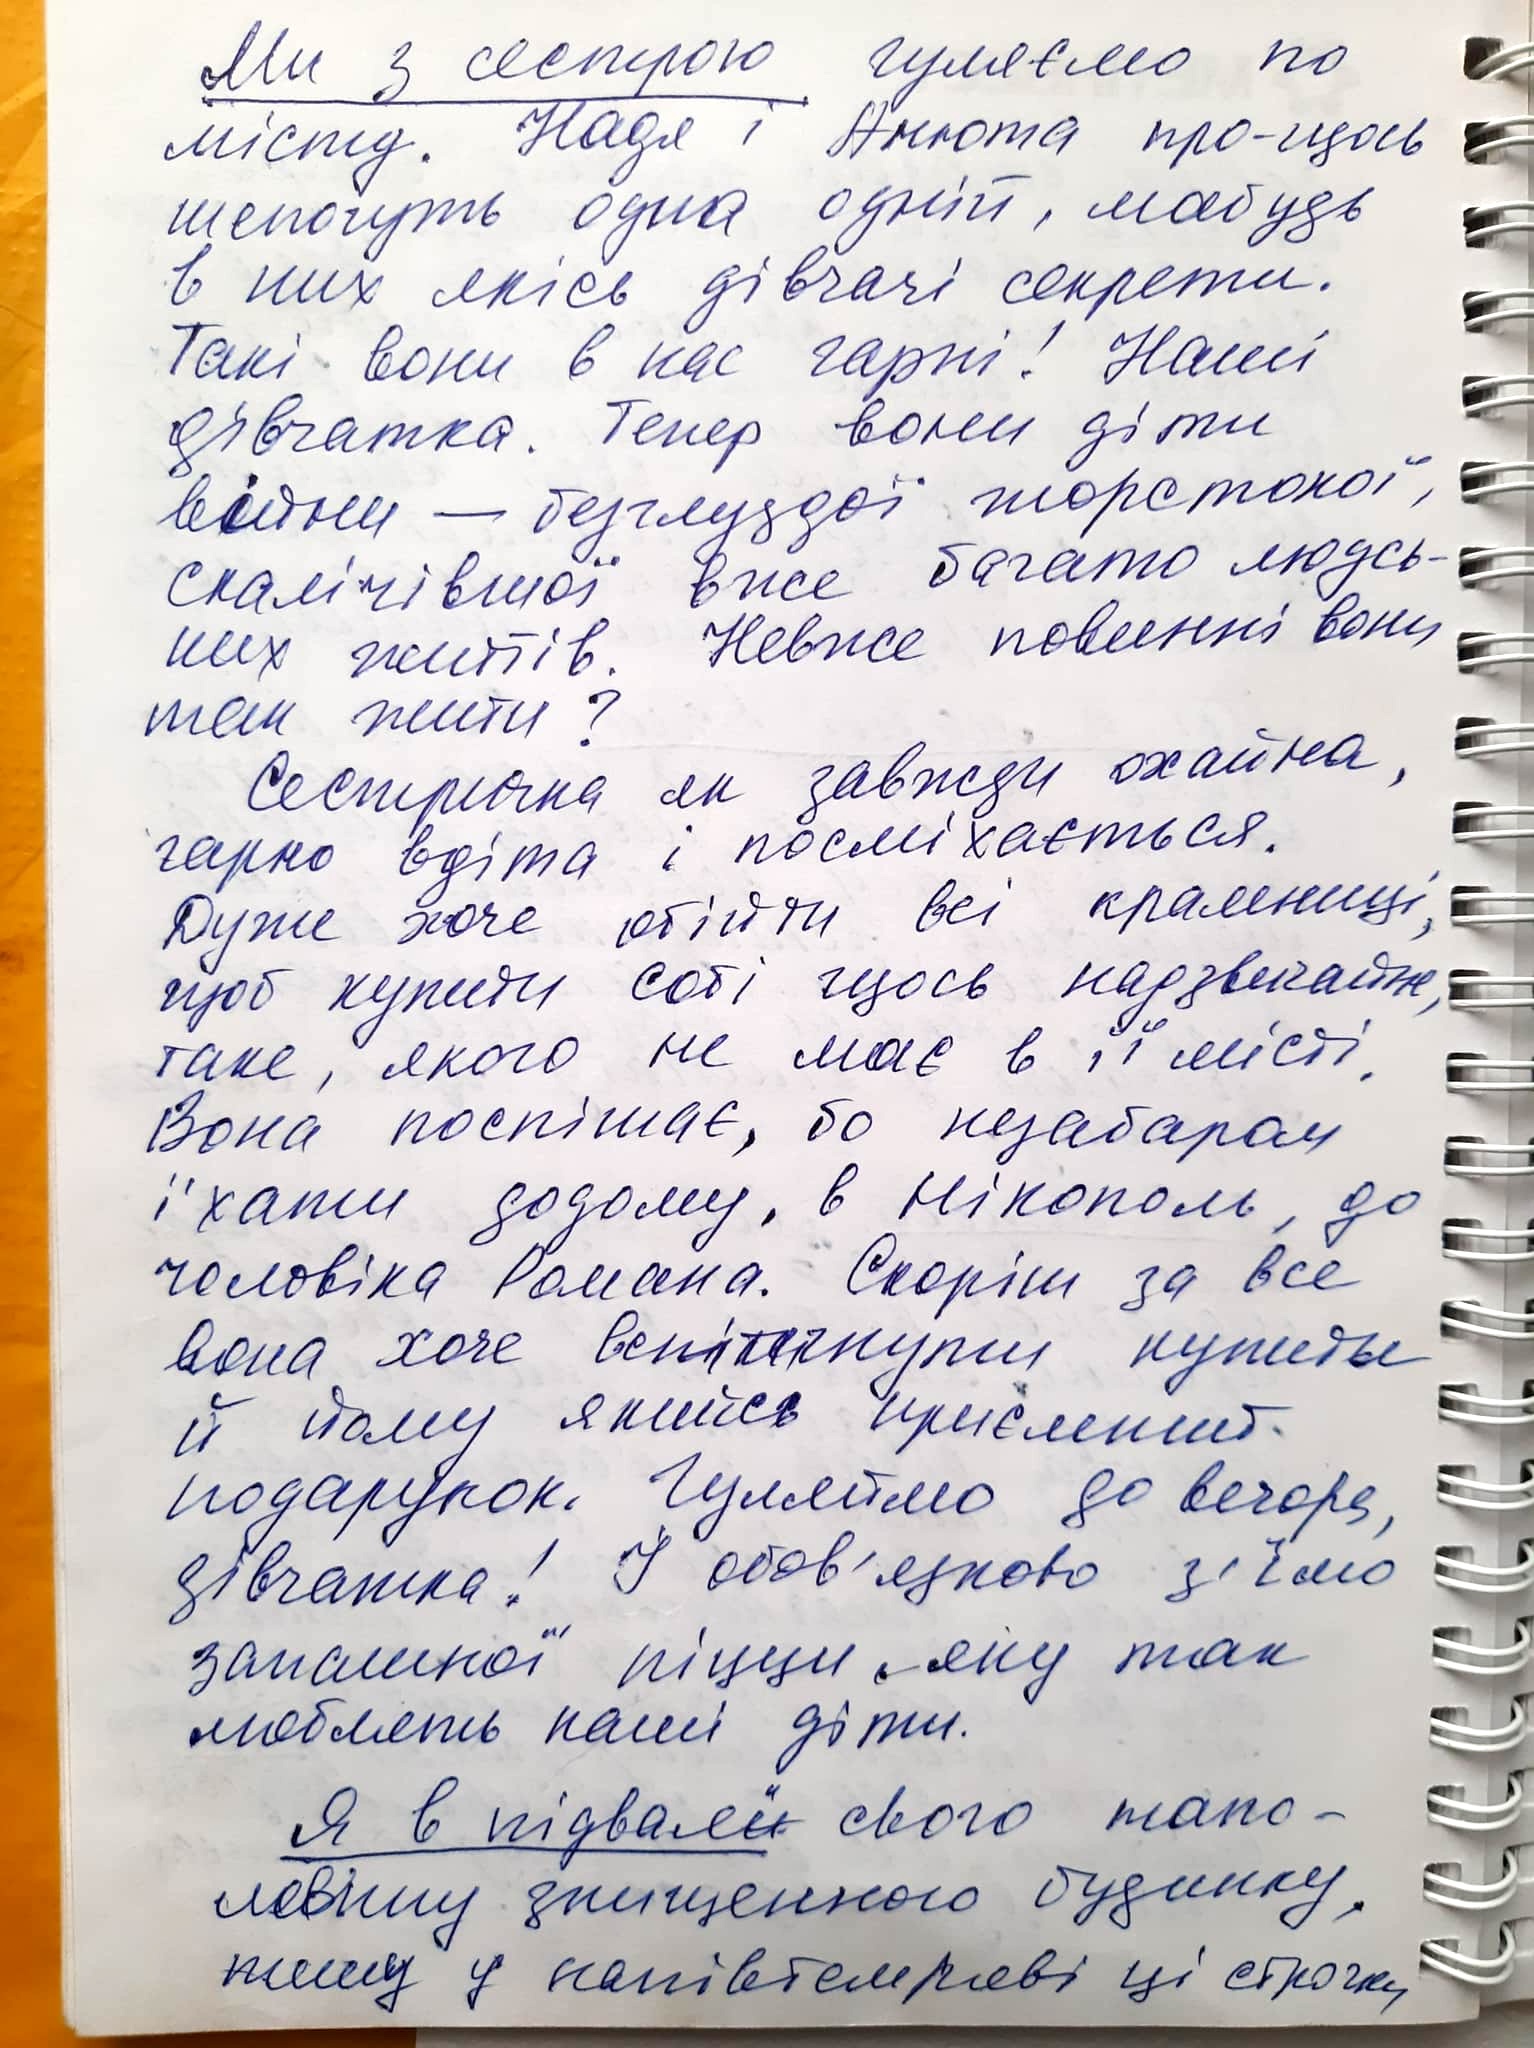 Ми з сестрою гуляємо по
місту. Надя і Анюта про-щось
шепочуть одна одній, мабудь
в них якісь дівчачі секрети.
Такі вони в нас гарні! Наші
дівчатка. Тепер вони діти
війни — безглуздої жорстокої,
скалічівшої вже багато людсь-
ких життів. Невже повинні вони
так жити?
Сестричка як завжди охайна,
гарно вдіта і посміхається.
Дуже хоче обійти всі крамниці,
щоб купити собі щось надзвичайне,
таке, якого не має в її місті.
Вона поспішає, бо незабаром
їхати додому, в Нікополь, до
чоловіка Романа. Скоріш за все
вона хоче купити
й йому якийсь приємний
подарунок. Гуляймо до вечора,
дівчатка! І обов'язково з'їмо
запашної піцци, яку так
люблять наші діти.
Я в підвалі свого
знищенного будинку,
пишу у напівтемряві ці строчки